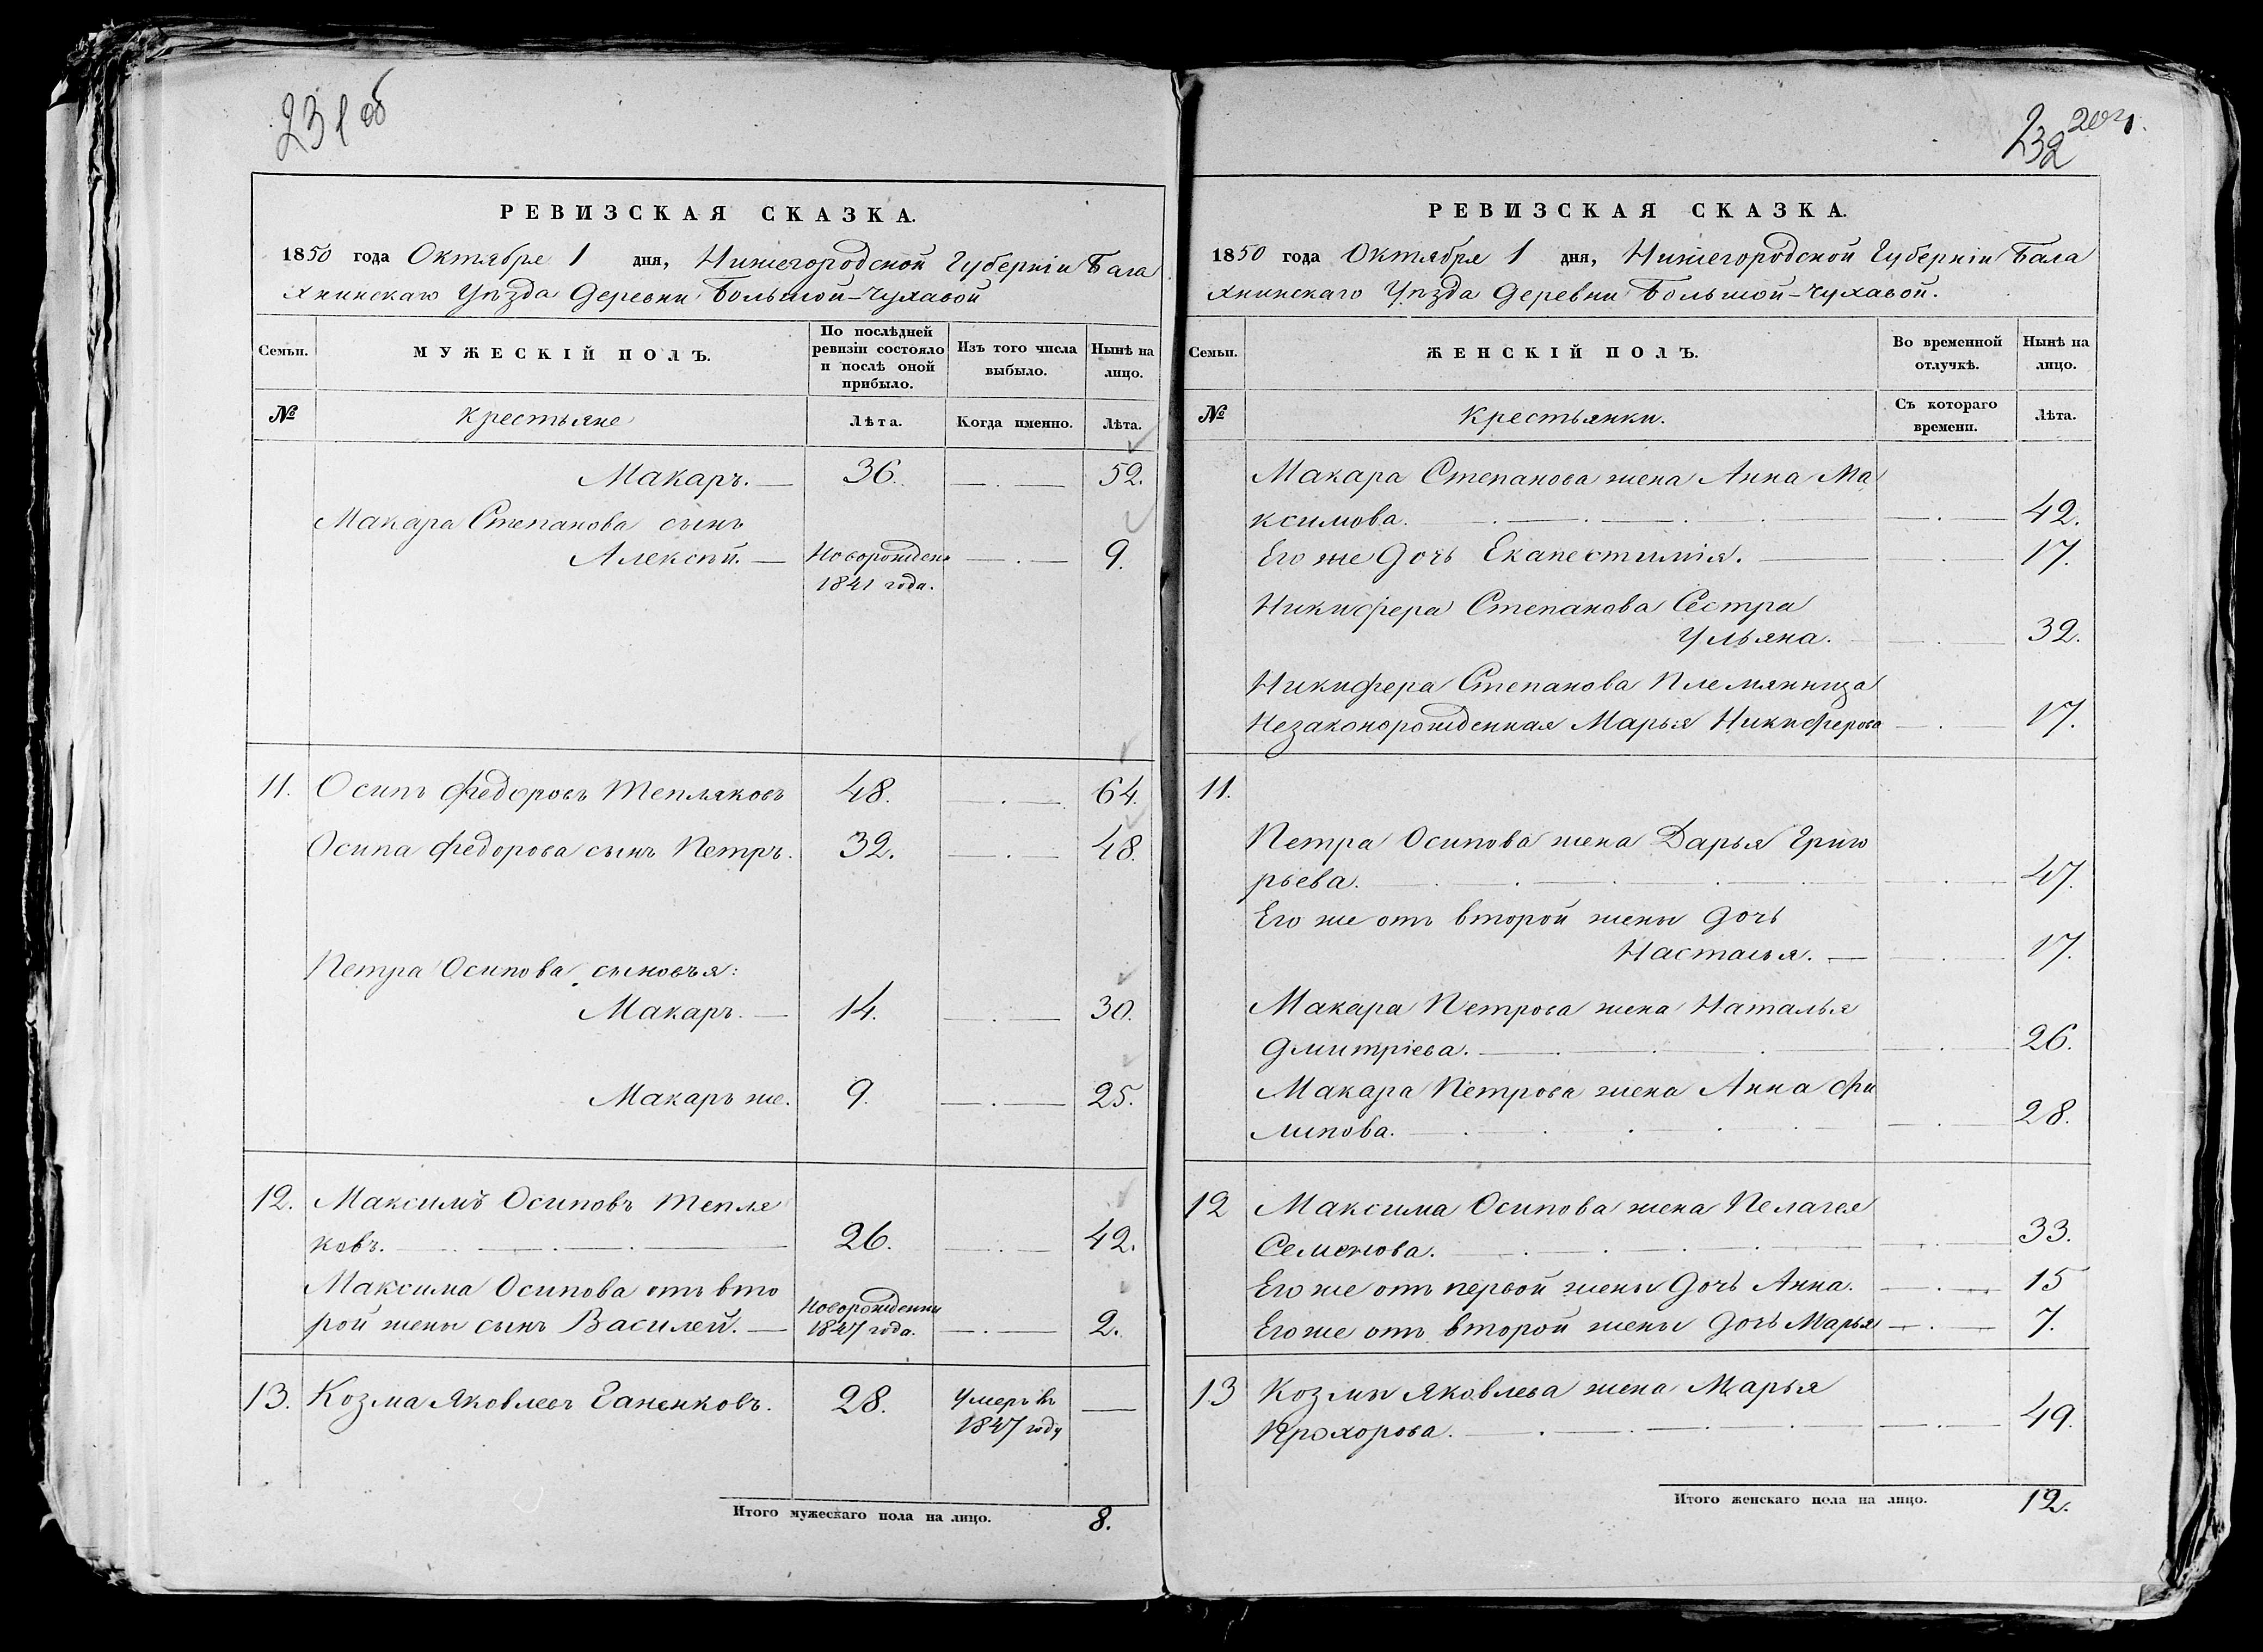 231 об
РЕВИЗСКАЯ СКАЗКА.
1850 года Октября 1 дня, Нижегородской Губерніи Бала
хнинскаго Уѣзда Деревни Большой-Чухавой
Семьи.
МУЖЕСКІЙ ПОЛЪ.
По послѣдней ревизіи состояло и послѣ оной прибыло.
Изъ того числа выбыло.
Нынѣ на лицо.
№ Крестьяне Лѣта. Когда именно. Лѣта.
Макаръ. — 36. —.— 52.
Макара Степанова сынъ
Алексѣй. — Новорожден —.— 9.
1841 года.
11. Осипъ Федоровъ Тепляковъ 48. —.— 64.
Осипа Федорова сынъ Петръ. 32. —.— 48.
Петра Осипова сыновья:
Макаръ. — 14. —.— 30.
Макаръ же. 9. —.— 25.
12. Максимъ Осиповъ Тепля
ковъ. 26. —.— 42.
Максима Осипова отъ вто
рой жены сынъ Василей. — Новорожденны 1847 года. —.— 2.
13. Козма Яковлевъ Ганенковъ. 28. Умеръ въ —
1847 году
Итого мужескаго пола на лицо. 8.
232 204.
РЕВИЗСКАЯ СКАЗКА.
1850 года Октября 1 дня, Нижегородской Губерніи Бала
хнинскаго Уѣзда Деревни Большой-Чухавой.
Семьи.
ЖЕНСКІЙ ПОЛЪ.
Во временной отлучкѣ.
Нынѣ на лицо.
№ Крестьянки. Съ котораго времени. Лѣта.
Макара Степанова жена Анна Ма
ксимова. —.— 42.
Его же дочь Екапестимія. —.— 17.
Никифера Степанова Сестра
Ульяна. —.— 32.
Никифера Степанова Племянница
Незаконорожденная Марья Никиферова —.— 17.
11.
Петра Осипова жена Дарья Григо
рьева. —.— 47.
Его же отъ второй жены дочь
Настасья. — —.— 17.
Макара Петрова жена Наталья
Дмитріева. —.— 26.
Макара Петрова жена Анна Фи
липова. —.— 28.
12 Максима Осипова жена Пелагея
Семенова. —.— 33.
Его же отъ первой жены дочь Анна. —.— 15
Его же отъ второй жены дочь Марья —.— 7.
13 Козмы Яковлева жена Марья
Прохорова. —.— 49.
Итого женскаго пола на лицо. 12.